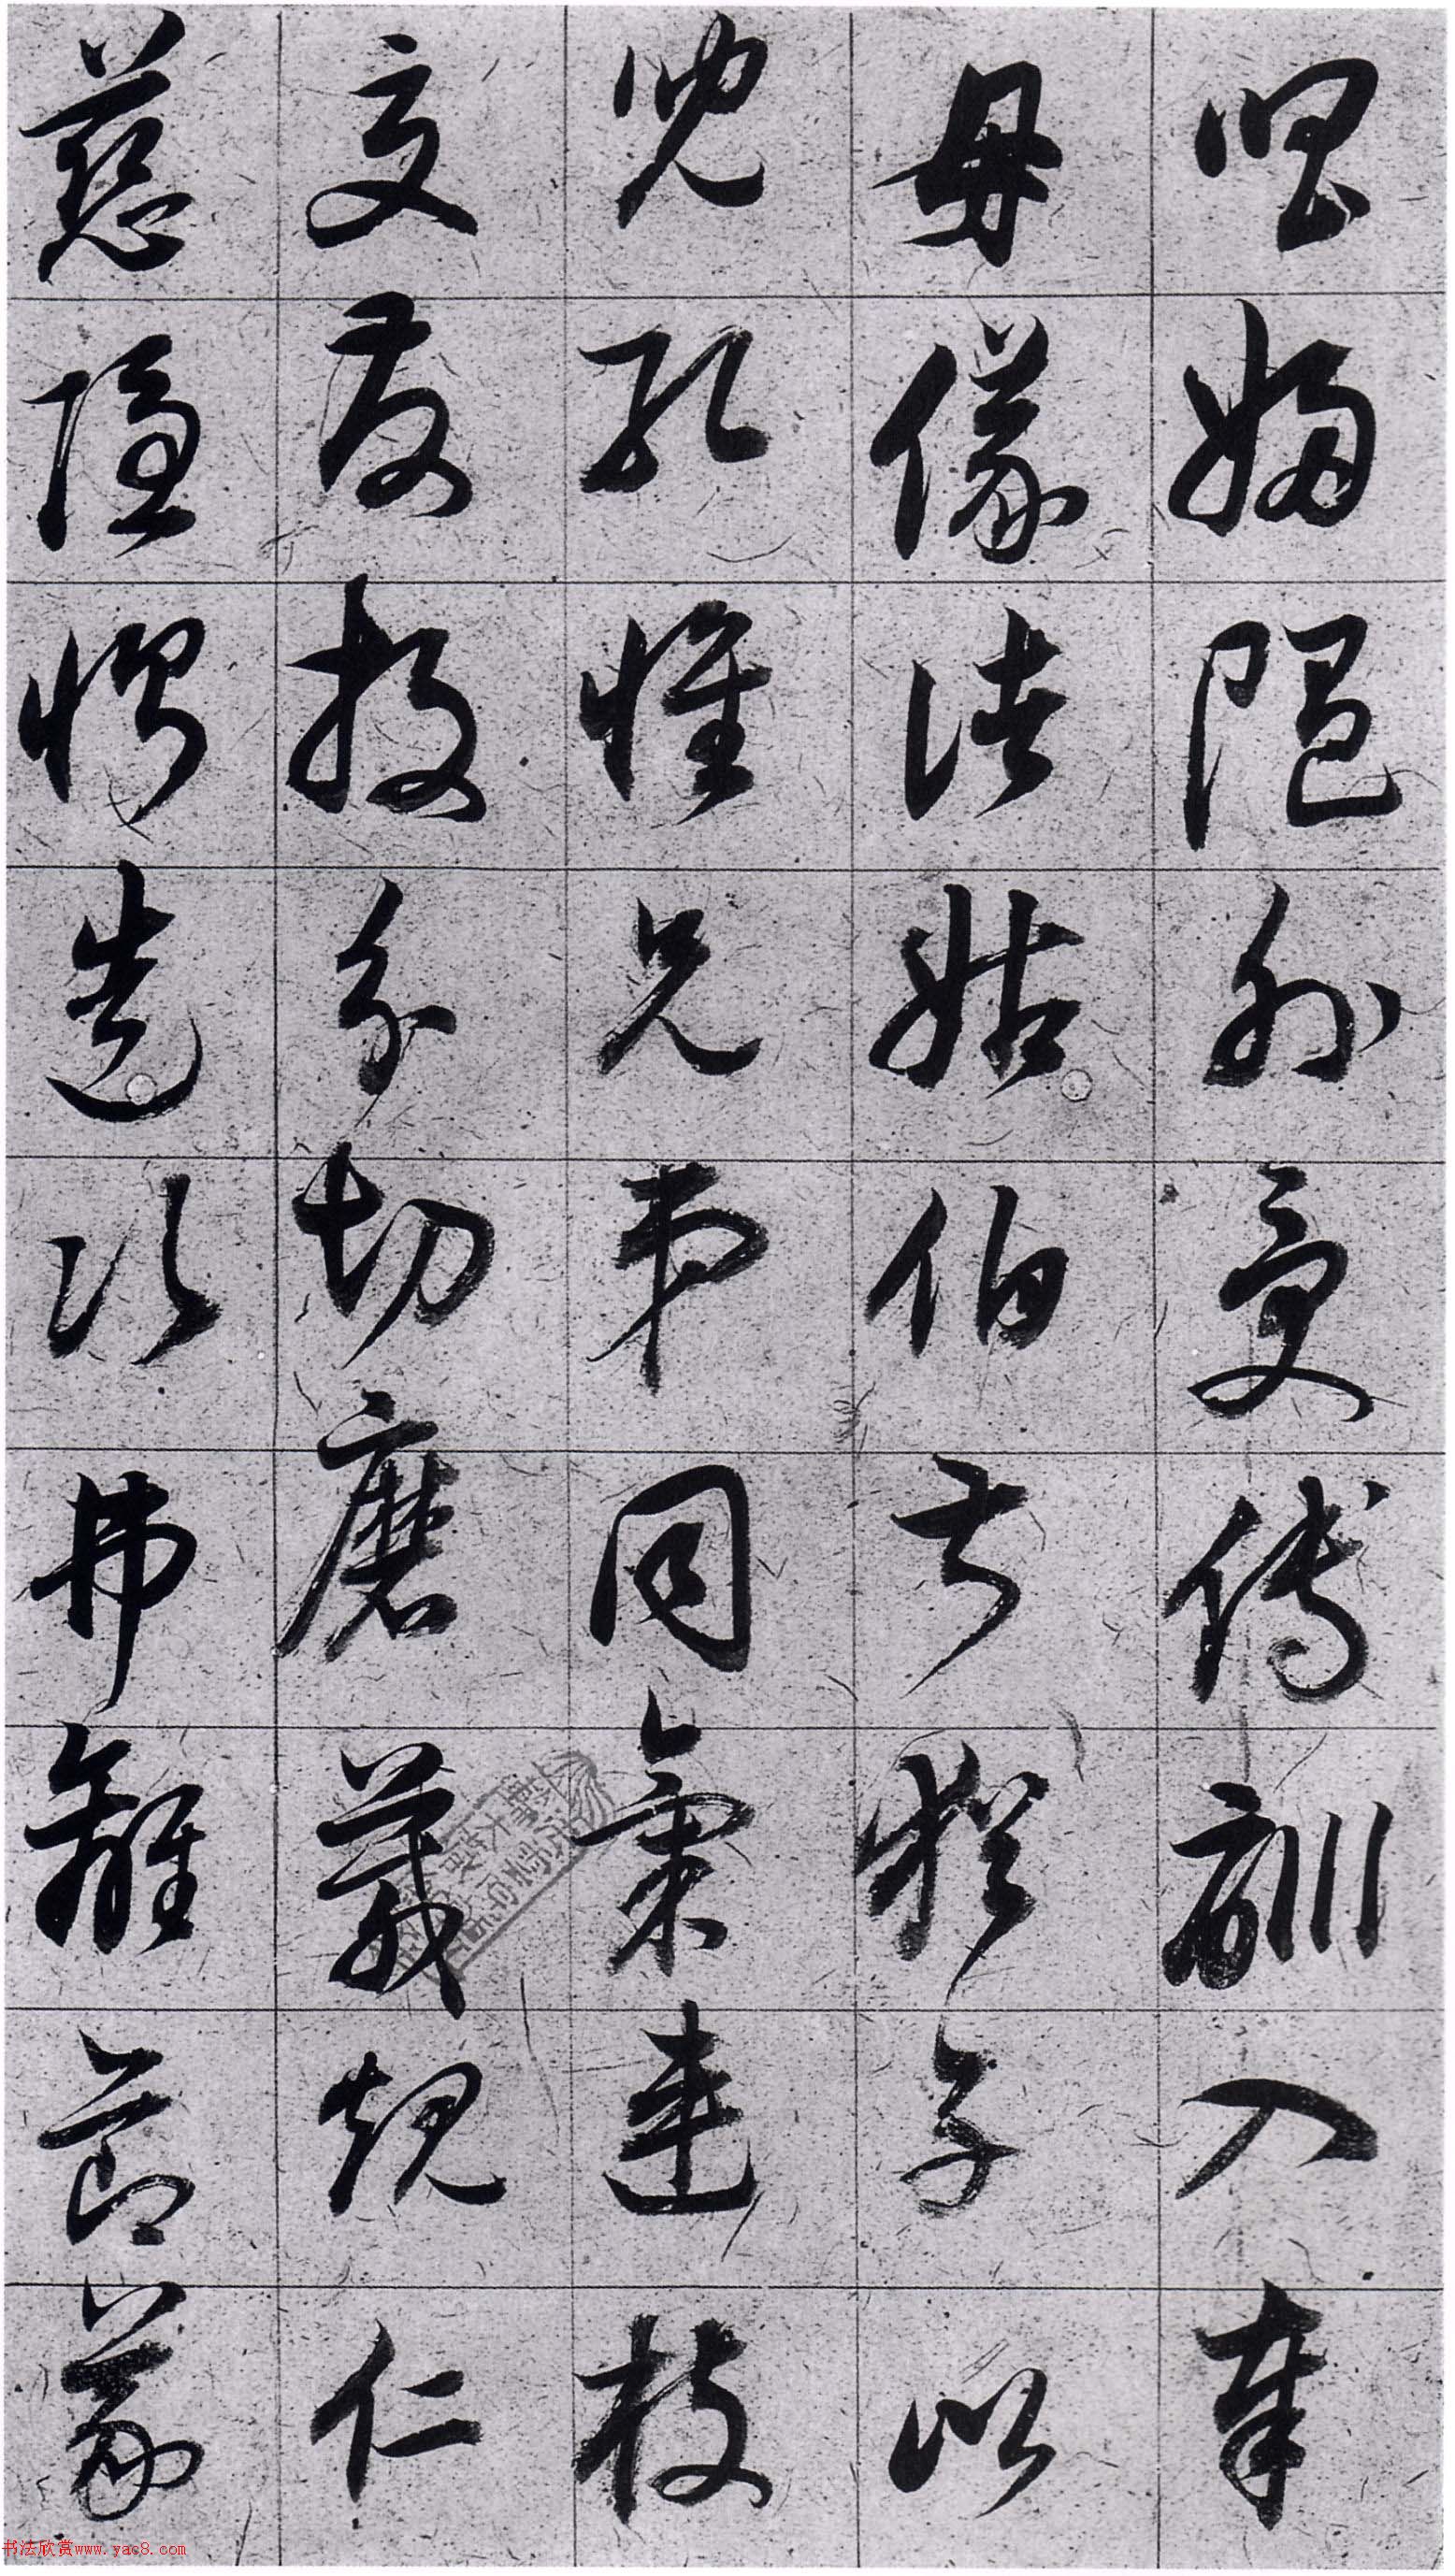 唱婦隨外受傅訓入奉
母儀諸姑伯叔猶子比
兒孔懷兄弟同氣連枝
交友投分切磨箴規仁
慈隱惻造次弗離節義
书法欣赏www.yac8.com